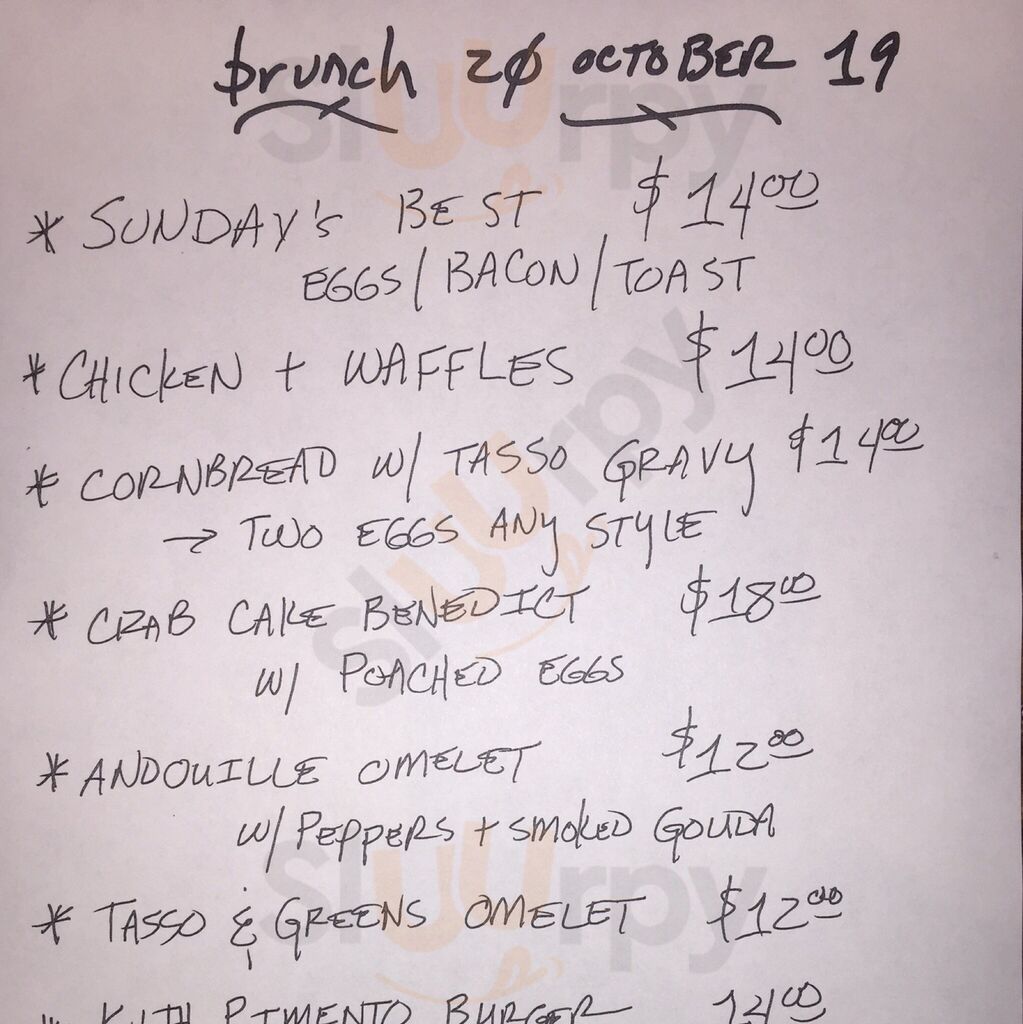 brunch 20 OCTOBER 19
* SUNDAY'S BEST $14.00
EGGS/BACON/TOAST
* CHICKEN + WAFFLES $14.00
* CORNBREAD W/ TASSO GRAVY $14.00
→ TWO EGGS ANY STYLE
* CRAB CAKE BENEDICT $18.00
W/ POACHED EGGS
* ANDOUILLE OMELET $12.00
W/ PEPPERS + SMOKED GOUDA
* TASSO & GREENS OMELET $12.00
* PIMENTO BURGER 14.00
sluurpy
sluurpy
sluurpy